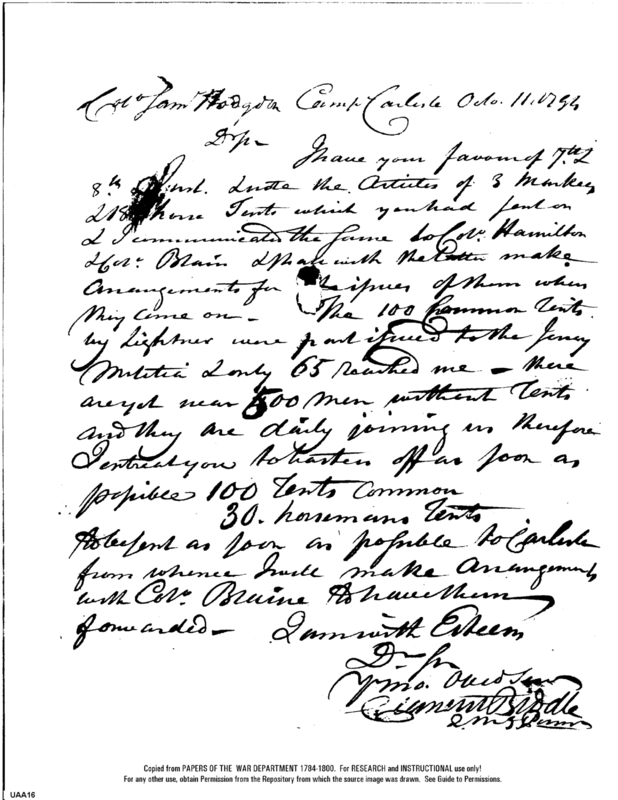 Colo Saml Hodgdon Camp Carlisle Octo. 11. 1794
Dr Sir
I have your favour of 7th &
8th Inst. & note the Articles of 3 Markees
& 18 horse Tents which you had sent on
& I communicated the same to Colo. Hamilton
& Colo. Blain & shall with the latter make
arrangements for the issues of them when
they come on — The 100 Common Tents
by Lightner were part issued to the Jersey
Militia & only 65 reached me — there
are yet near 500 men without Tents
and they are daily joining us therefore
I entreat you to hasten off as soon as
possible 100 Tents Common
30. horsemans Tents
to be sent as soon as possible to Carlisle
from whence I will make arrangements
with Colo. Blaine to have them
forwarded — I am with Esteem
Dr Sir
Yr mo. Obed Serv
Clement Biddle
Copied from PAPERS OF THE WAR DEPARTMENT 1784-1800. For RESEARCH and INSTRUCTIONAL use only!
For any other use, obtain Permission from the Repository from which the source image was drawn. See Guide to Permissions.
UAA16